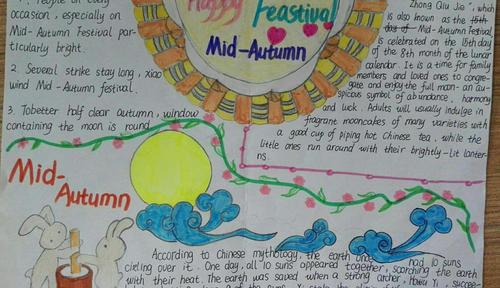 1. People on every
occasion, especially on
Mid-Autumn Festival par-
ticularly bright.
2. Several strike stay long, xiao
wind Mid-Autumn festival.
3. Tobetter half clear autumn, window
containing the moon is round
Happy
Feastival
Mid-Autumn
Zhong Qiu Jie", which
is also known as the 15th
day of Mid-Autumn Festival,
is celebrated on the 15th day
of the 8th month of the lunar
calendar. It is a time for family
members and loved ones to congre-
gate and enjoy the full moon-an au-
spicious symbol of abundance, harmony
and luck. Adults will usually indulge in
fragrant mooncakes of many varieties with
a good cup of piping hot Chinese tea, while the
little ones run around with their brightly-lit lanter-
ns.
Mid-
Autumn
According to Chinese mythology, the earth once had 10 suns
cieling over it. One day, all 10 suns appeared together, scorching the earth
with their heat. The earth was saved when a strong archer, Hou Yi, succee-